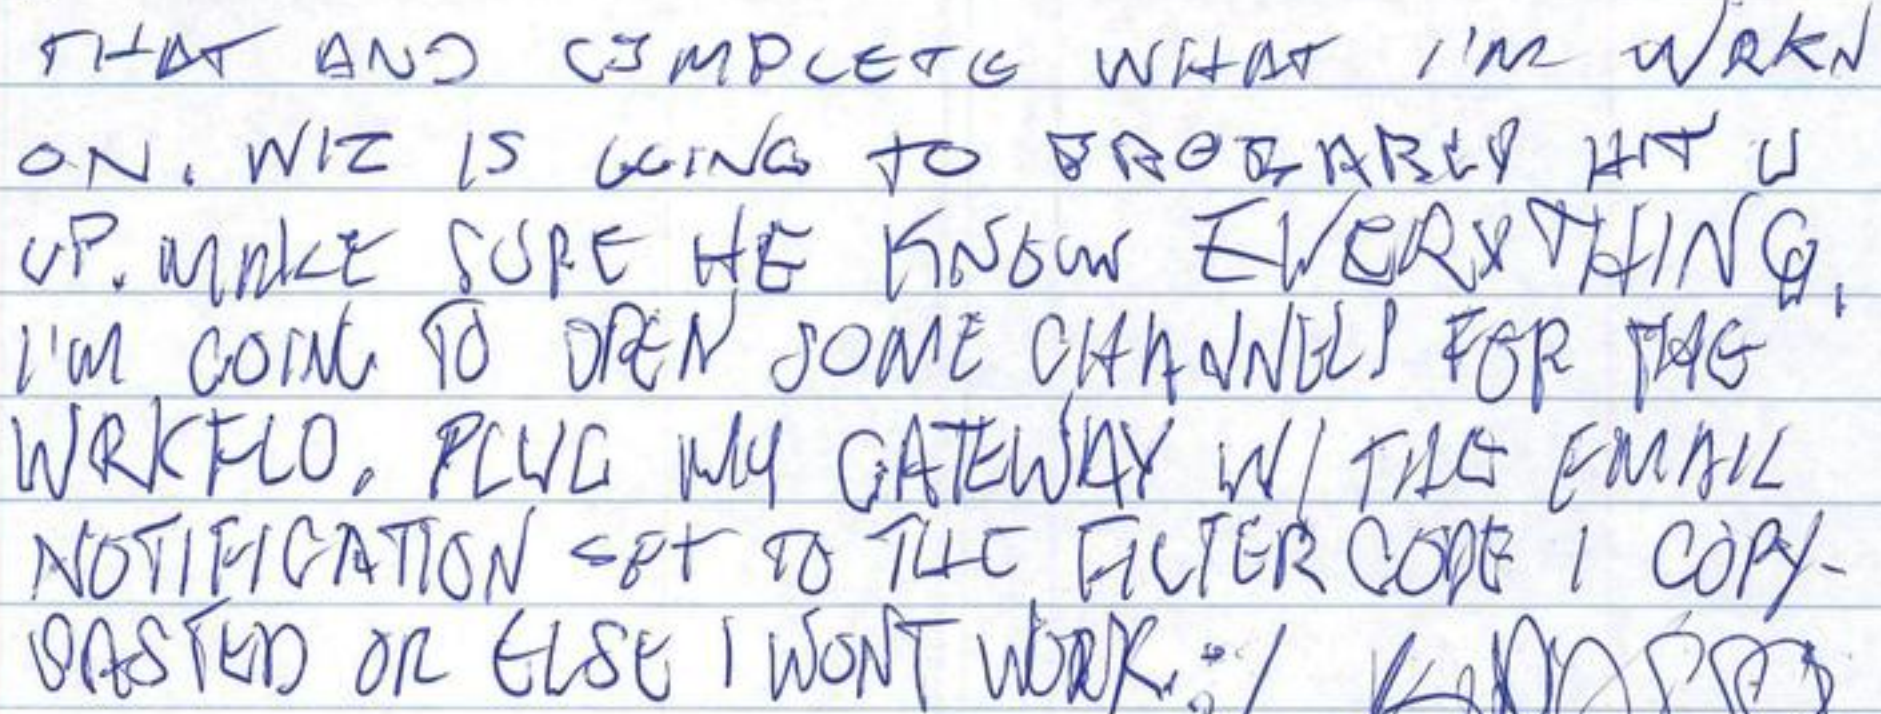 THAT AND COMPLETE WHAT I'M WRKN
ON. WIZ IS GOING TO PROBABLY HIT U
UP. MAKE SURE HE KNOW EVERYTHING.
I'M GOING TO OPEN SOME CHANNELS FOR THE
WRKFLO. PLUG MY GATEWAY W/ THE EMAIL
NOTIFICATION SET TO THE FILTER CODE I COPY-
PASTED OR ELSE I WONT WORK. :/